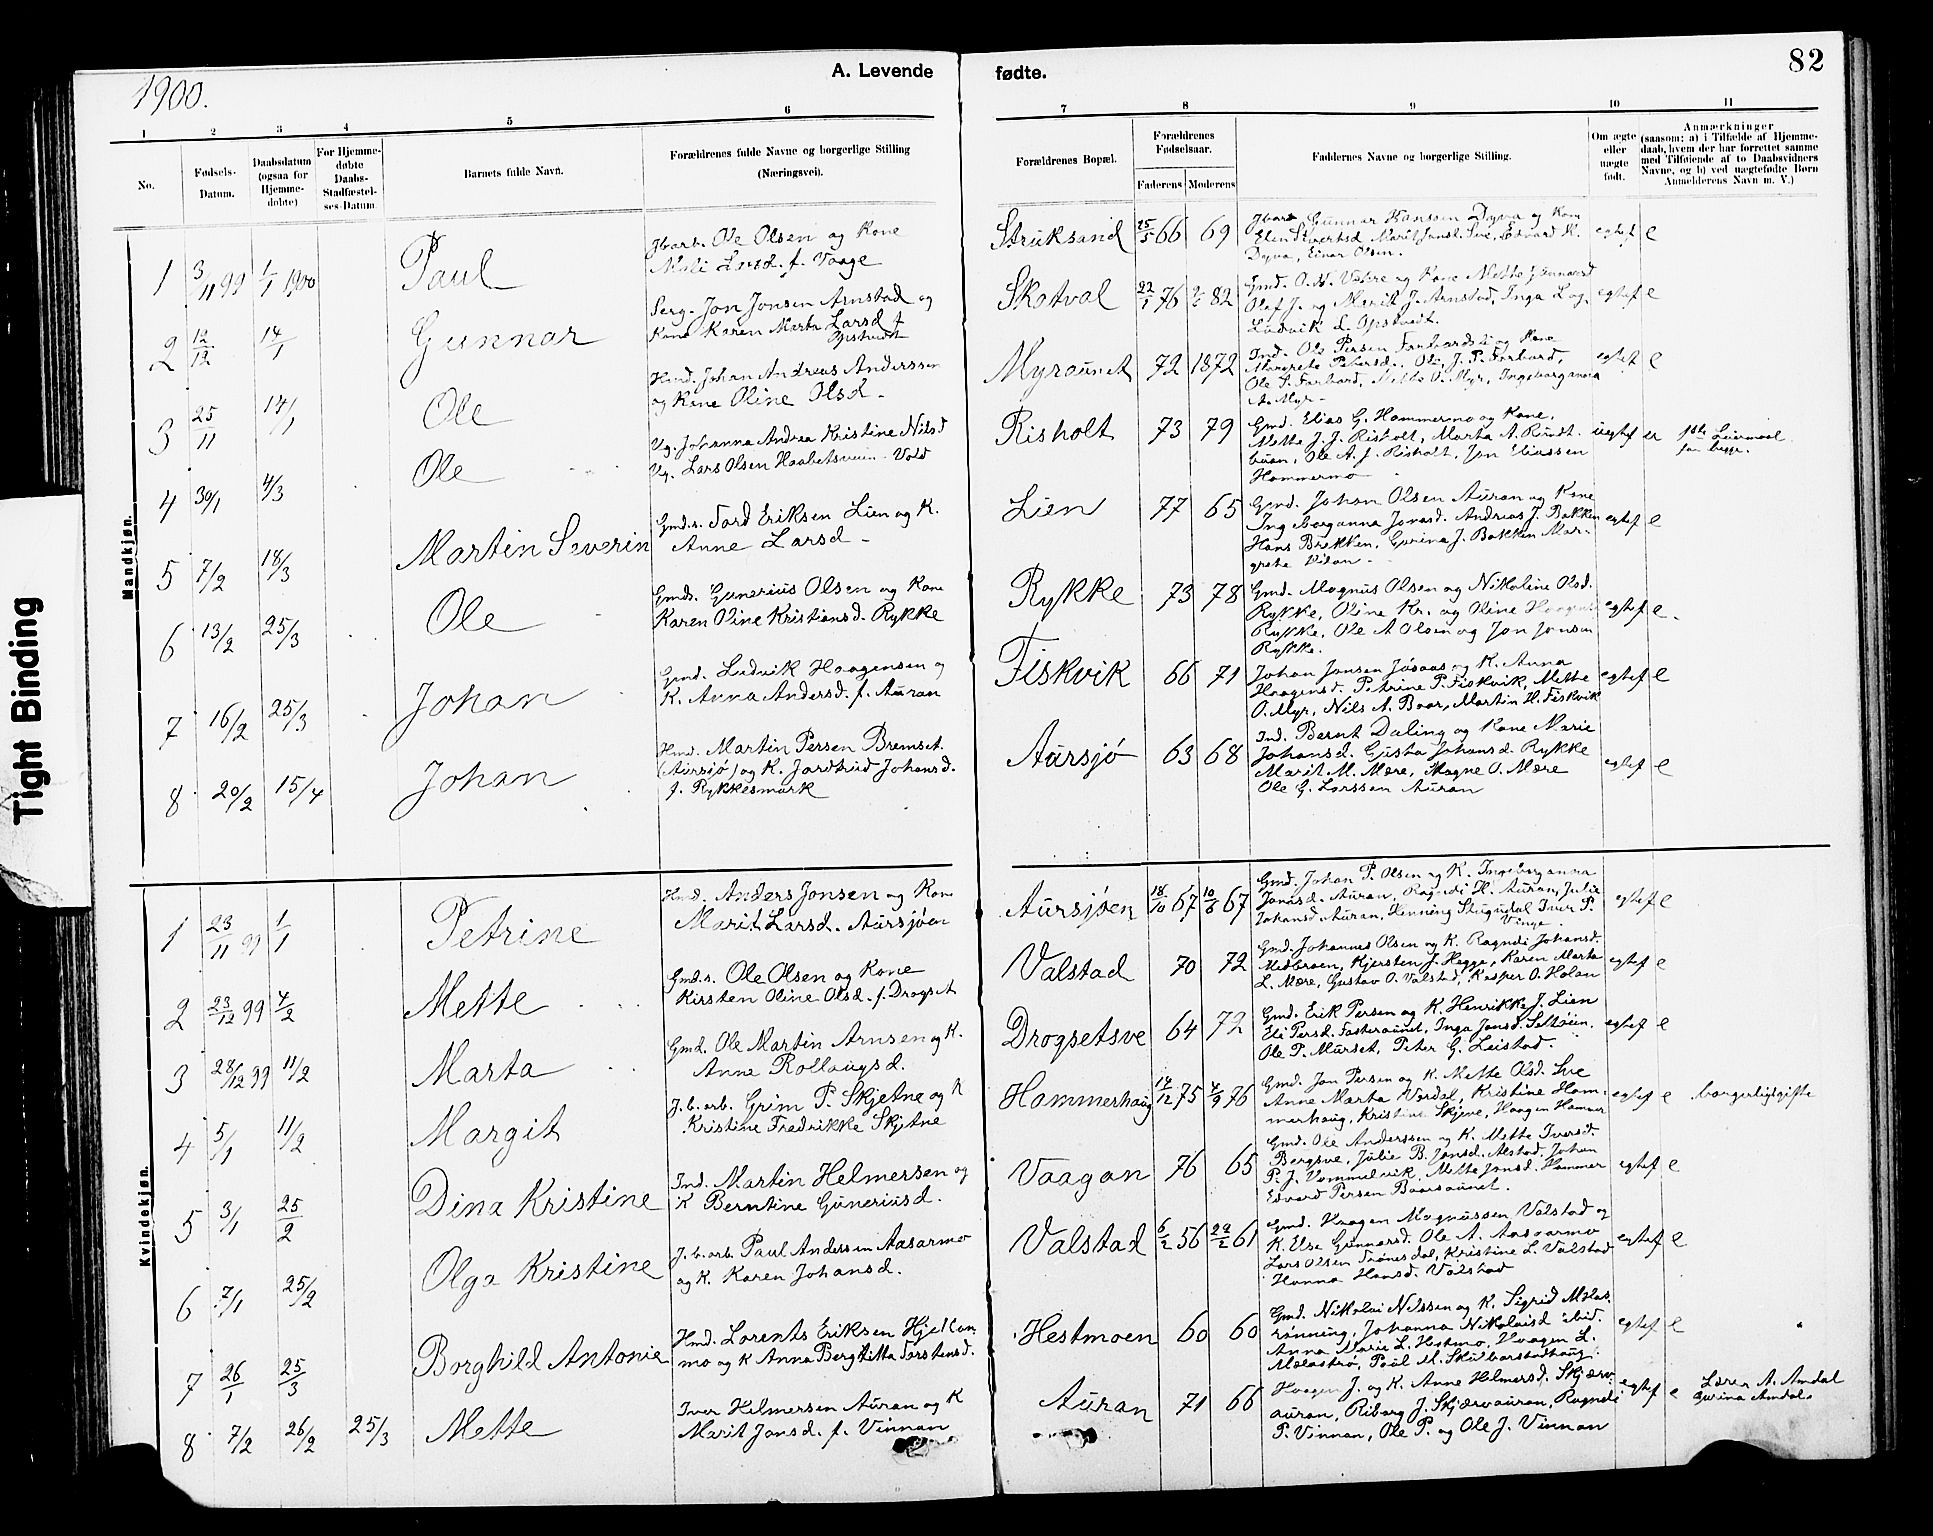 1900.
A. Levende
fødte.
82
1
2
3
4
5
6
7
8
9
10
11
No.
Fødsels-
Datum.
Daabsdatum
(ogsaa for
Hjemme-
døbte)
For Hjemme-
døbte
Daabs-
Stadfæstel-
ses-Datum
Barnets fulde Navn.
Forældrenes fulde Navne og borgerlige Stilling
(Næringsvei).
Forældrenes Bopæl.
Forældrenes
Fødselsaar.
Faderens
Moderens
Faddernes Navne og borgerlige Stilling.
Om ægte
eller
uægte
født.
Anmærkninger
(saasom; a) i Tilfælde af Hjemme-
daab, hvem der har forrettet samme
med Tilføiende af to Daabsvidners
Navne, og b) ved uægtefødte Børn
Anmelderens Navn m. V.)
Tight Binding
Mandkjøn.
1 3/11 99 1/1 1900 Paul
Jbarb. Ole Olsen og Kone
f. Vaage
Struksand 25/5 66 69
Gunnar Hanssen Dyva og Kone
Dyva, Einar Olsen.
egtef e
2 12/12 14/1 Gunnar
Serg. Jon Jonsen Arnstad og
Kone Karen Marta Larsd f
Opstvedt
Skatval 22/1 76 82
Gmd. O. H. Valsre og Kone Mette Gunnarsd
Olaf J. og Marit J. Arnstad, Inga L og
Ludvik L. Opstvedt.
egtef e
3 25/11 14/1 Ole
Hmd. Johan Andreas Anderssen
og Kone Oline Olsd -
Myraunet 72 1872
Ind. Ole Persen Forbordsti og Kone
Margrete Petersd., Ole J. P. Forbord,
Ole P. Forbord, Mette O. Myr, Ingeborganna
A. Myr -
egtef e
4 30/1 4/3 Ole
Ug. Johanna Andrea Kristine Nilsd
Ug. Lars Olsen Haabetsveien - Vold
Risholt 73 79
Gmd. Elias G. Hammermo og Kone,
Mette J. J. Risholt, Marta A. Rundt-
buan, Ole A. J. Risholt, Jon Eliassen
Hammermo
uegtef u
1ste Leiermaal
for begge.
5 7/2 18/3 Martin Severin
Gmd.s. Tord Eriksen Lien og K.
Anne Larsd -
Lien 77 65
Gmd. Johan Olsen Auran og Kone
Ingeborganna Jonasd. Andreas J. Bakken
Hans Brekken, Gurina J. Bakken Mar-
grete Vikan -
egtef e
6 13/2 25/3 Ole
Gmds. Gunerius Olsen og Kone
Karen Oline Kristiansd. Rykke
Rykke 73 78
Gmd. Magnus Olsen og Nikoline Olsd.
Rykke, Oline Kr. og Oline Haagensd
Rykke, Ole A Olsen og Jon Jonsen
Rykke.
egtef e.
7 16/2 25/3 Johan
Gmd. Ludvik Haagensen og
K. Anna Andersd. f. Auran
Fiskvik 66 71
Johan Jonsen Jøsaas og K. Anna
Haagensd. Petrine P. Fiskvik, Mette
O. Myr, Nils A. Baar, Martin H. Fiskvik
egtef e
8 20/2 15/4 Johan
Hmd. Martin Persen Bremset
(Aursjø) og K. Jardtrud Johansd.
f. Rykkesmark
Aursjø 63 68
Ind. Bernt Daling og Kone Marie
Johansd. Gusta Johansd. Rykke
Marit M. Mære, Magne O. Mære
Ole G. Larssen Auran
egtef e
Kvindekjøn.
1 23/11 99 1/1 Petrine
Hmd. Anders Jonsen og Kone
Marit Larsd. Aursjøen
Aursjøen 18/10 67 10/6 67
Gmd. Johan P. Olsen og K. Ingeborganna
Jonasd. Auran, Ragndi H. Auran, Julie
Johansd Auran, Henning Stugudal Iver P.
Vinge.
egtef e
2 23/12 99 4/2 Mette
Gmd.s. Ole Olsen og Kone
Kirsten Oline Olsd. f. Drogset
Valstad 70 72
Gmd. Johannes Olsen og K. Ragndi Johansd.
Midbroen, Kjersten J. Hegge, Karen Marta
L. Mære, Gustav O. Valstad, Kasper O. Holan
egtef e
3 28/12 99 11/2 Marta
Gmd. Ole Martin Arnsen og K.
Anne Rollaugsd.
Drogsetsve 64 72
Gmd. Erik Persen og K. Henrikke J. Lien
Eli Persd. Fasteraunet, Inga Jonsd.
Ole P. Murset, Peter G. Leistad.
egtef e
4 5/1 11/2 Margit
J.b.arb. Grim P. Skjetne og K
Kristine Fredrikke Skjetne
Hammerhaug 14/12 75 4/9 76
Gmd. Jon Persen og K. Mette Olsd. Sve
Anne Marta Verdal, Kristine Ham-
merhaug, Kristine Skjerve, Haagen Hammer
egtef e
borgerligtgifte
5 3/1 25/2 Dina Kristine
Ind. Martin Helmersen og
K Berntine Guneriusd.
Vaagan 76 65
Gmd. Ole Anderssen og K. Mette Iversd.
Bergsve, Julie B. Jonsd. Alstad, Johan
P. J. Vammelvik, Mette Jonsd. Hammer
Edvard Persen Baarsaunet.
egtef e
6 7/1 25/2 Olga Kristine
J.b.arb. Paul Anderssen Aasarmo
og K. Karen Johansd.
Valstad 6/2 56 22/2 61
Gmd. Haagen Magnussen Valstad og
K. Else Gunnarsd. Ole A. Aasarmo
Lars Olsen Trønesdal, Kristine L. Valstad
Hanna Hansd. Valstad
egtef e
7 26/1 25/3 Borghild Antonie
Hmd. Lorents Eriksen Hjellan-
mo og K Anna Bergitta Torstensd.
Hestmoen 60 60
Gmd. Nikolai Nilssen og K. Sigrid Mælas-
rønning, Johanna Nikolaisd ibid.
Anna Marie L. Hestmo, Haagen L.
Mælastrø, Paul M. Skulbørstadhaug
egtef e
8 7/2 26/2 25/3 Mette
Iver Hilmersen Auran og K
Marit Jonsd. f. Vinnan
Auran 71 66
Haagen J. og K. Anne Hilmersd. Skjærv-
auran, Riborg J. Skjærvauran, Ragndi
P. Vinnan, Ole P. og Ole J. Vinnan
egtef e
Lærer A. Amdal
Gurina Amdal